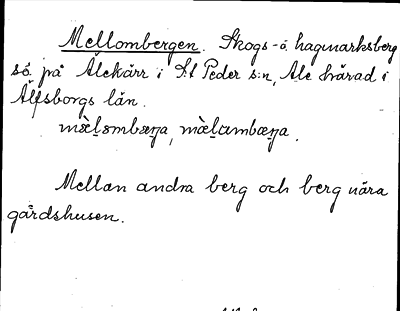 Mellombergen. Skogs- o. hagmarksberg
så på Ålekärr i S:t Peder s:n, Ale härad i
Älfsborgs län.
Mellan andra berg och berg nära
gårdshusen.